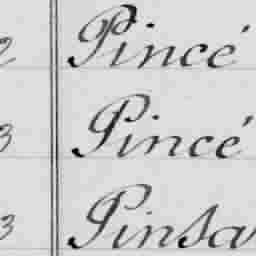 2 Pincé
3 Pincé
3 Pinsa